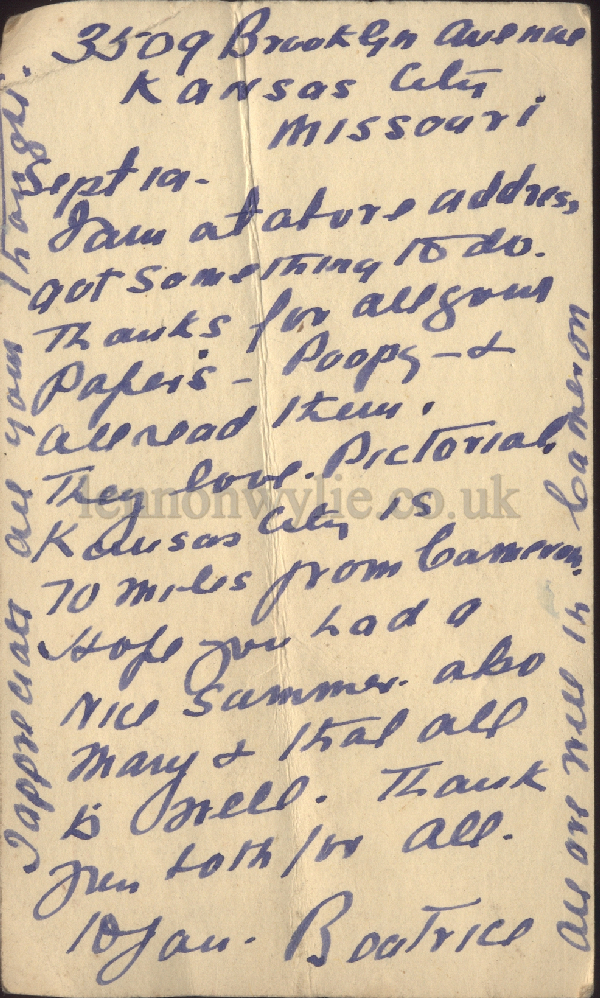 3509 Brooklyn Avenue
Kansas City
Missouri
Sept 19.
I am at above address,
got something to do.
Thanks for all your
Papers - Poopy - &
all read them.
They love. Pictorial,
Kansas City is
70 miles from Cameron.
Hope you had a
Nice Summer. also
Mary & that all
is well. Thank
you both for all.
Beatrice
I appreciate all your thought.
All are well in Cameron
lennonwylie.co.uk